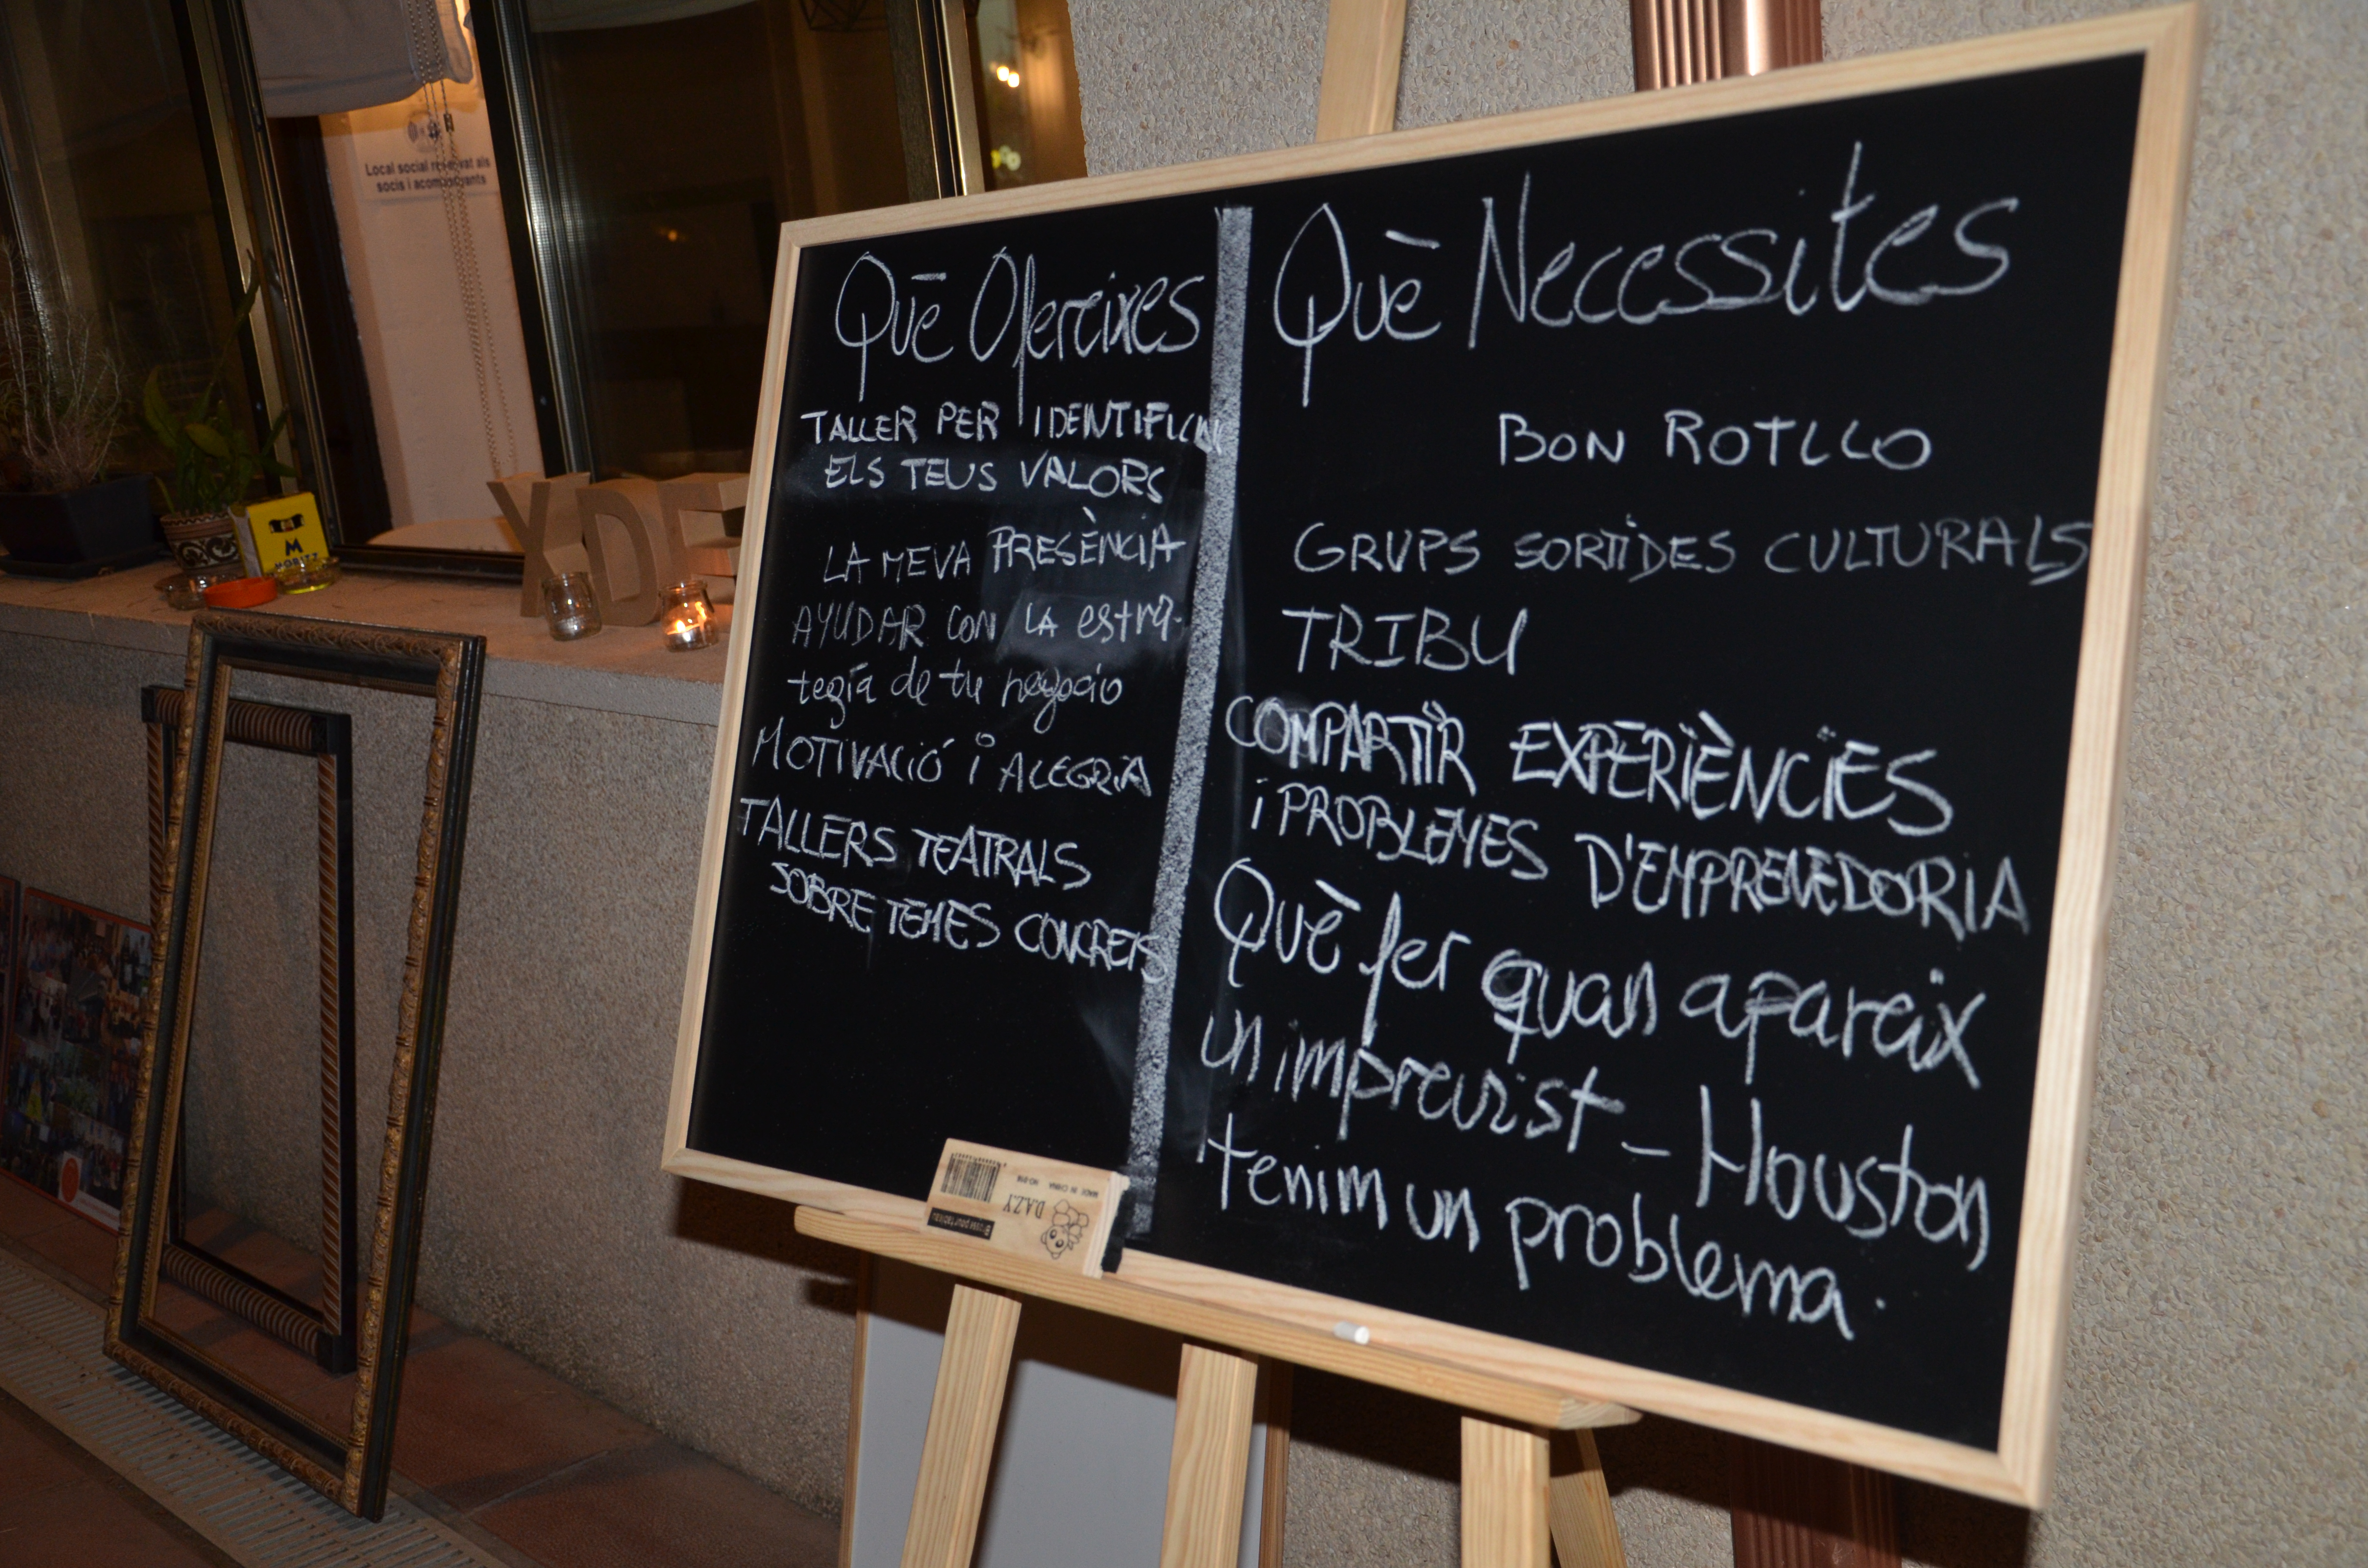 Local social reservat als
socis i acompanyants
M
MORITZ
XDE
Què Ofereixes
TALLER PER IDENTIFICAR
ELS TEUS VALORS
LA MEVA PRESÈNCIA
AYUDAR CON LA estra-
tegía de tu negocio
MOTIVACIÓ i ALEGRIA
TALLERS TEATRALS
SOBRE TEMES CONCRETS
Què Necessites
BON ROTLLO
GRUPS SORTIDES CULTURALS
TRIBU
COMPARTIR EXPERIÈNCIES
i PROBLEMES D'EMPRENEDORIA
Què fer quan apareix
un imprevist - Houston
tenim un problema.
D.A.Z.Y
MADE IN CHINA